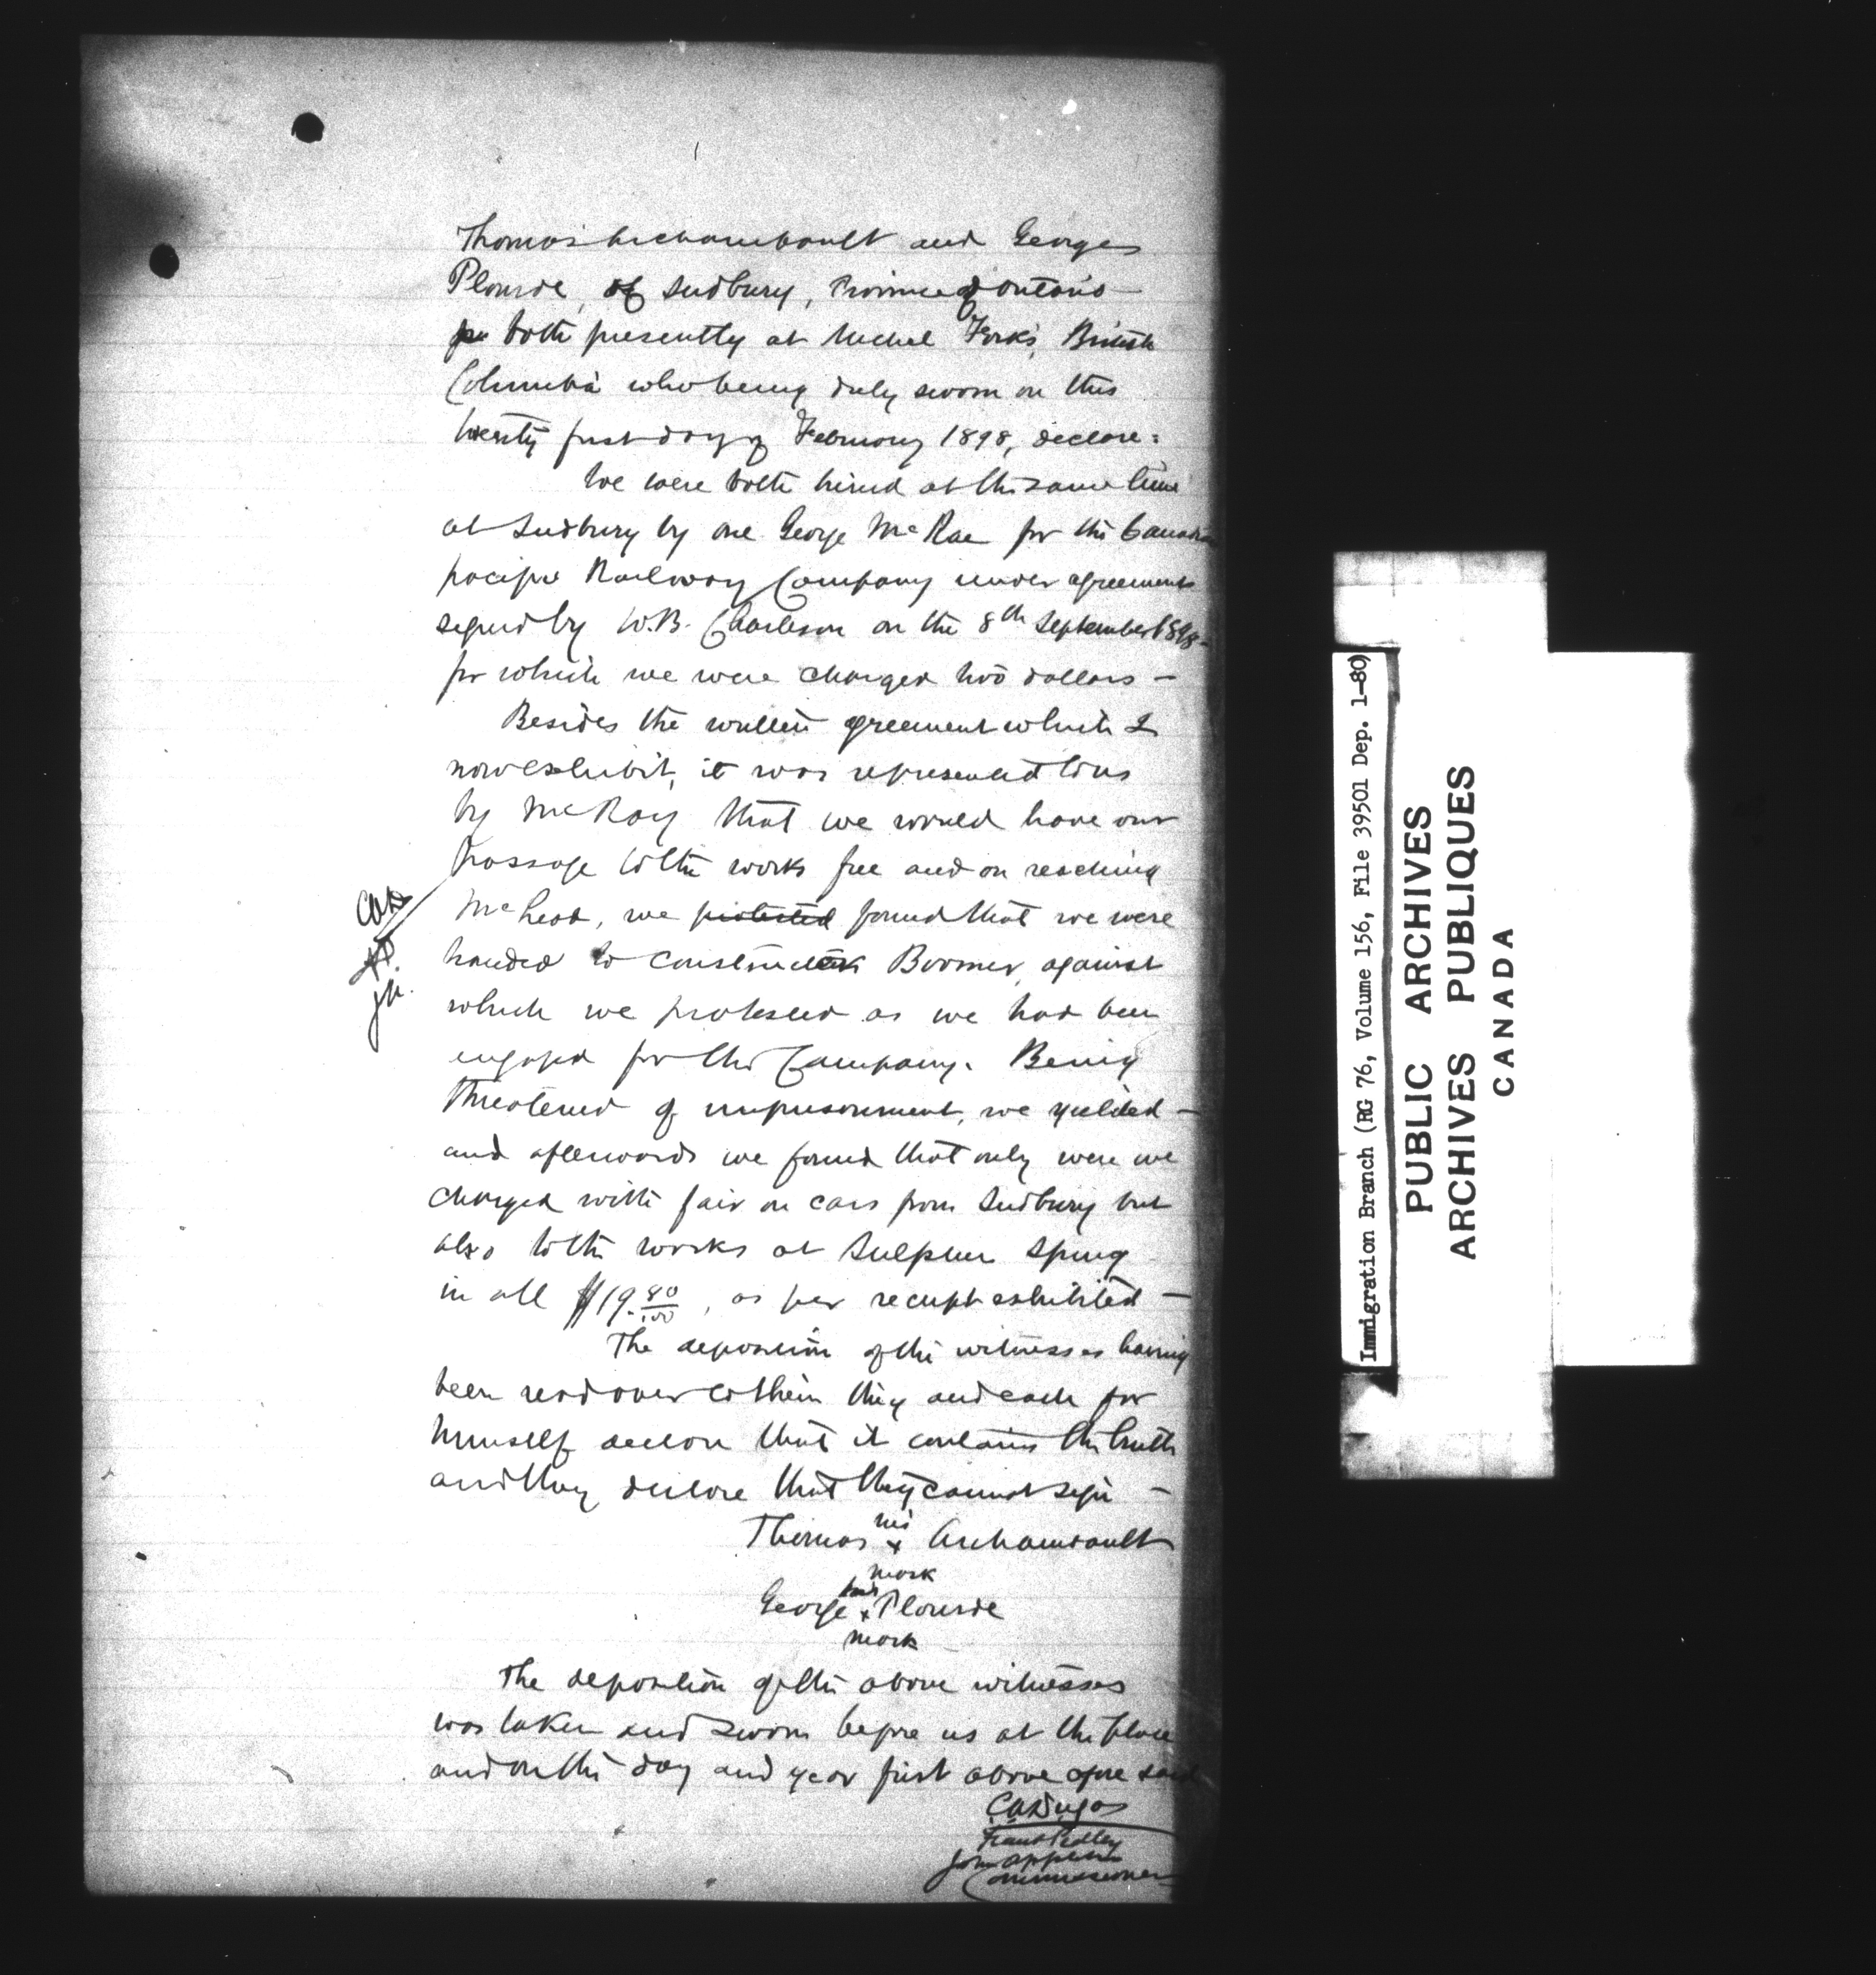 Thomas Archambault and George
Plourde, of Sudbury, Province of Ontario
both presently at Michel Forks, British
Columbia who being duly sworn on this
twenty first day of February 1898, declare:
We were both hired at the same time
at Sudbury by one George McRae for the Canadian
pacific Railway Company under agreement
signed by W.B. Charleson on the 8th September 1898 -
for which we were charged two dollars -
Besides the written agreement which I
now exhibit, it was represented to us
by McRay that we would have our
passage to the works free and on reaching
McLeod, we protested found that we were
handed to constructor Boomer, against
which we protested as we had been
engaged for the Company. Being
threatened of imprisonment, we yielded -
and afterwards we found that only were we
charged with fair on cars from Sudbury but
also to the works at Sulphur Spring
in all $19.80/100, as per receipt exhibited -
The deposition of the witnesses having
been read over to them they and each for
himself declare that it contains the truth
and they declare that they cannot sign -
his
Thomas x Archambault
mark
his
George x Plourde
mark
The deposition of the above witnesses
was taken and sworn before us at the place
and on the day and year first above afore said
CADugas
Frank Pedley
John Appleton
Commissioners
CAD
JA.
Immigration Branch (RG 76, Volume 156, File 39501 Dep. 1-80)
PUBLIC ARCHIVES
ARCHIVES PUBLIQUES
CANADA